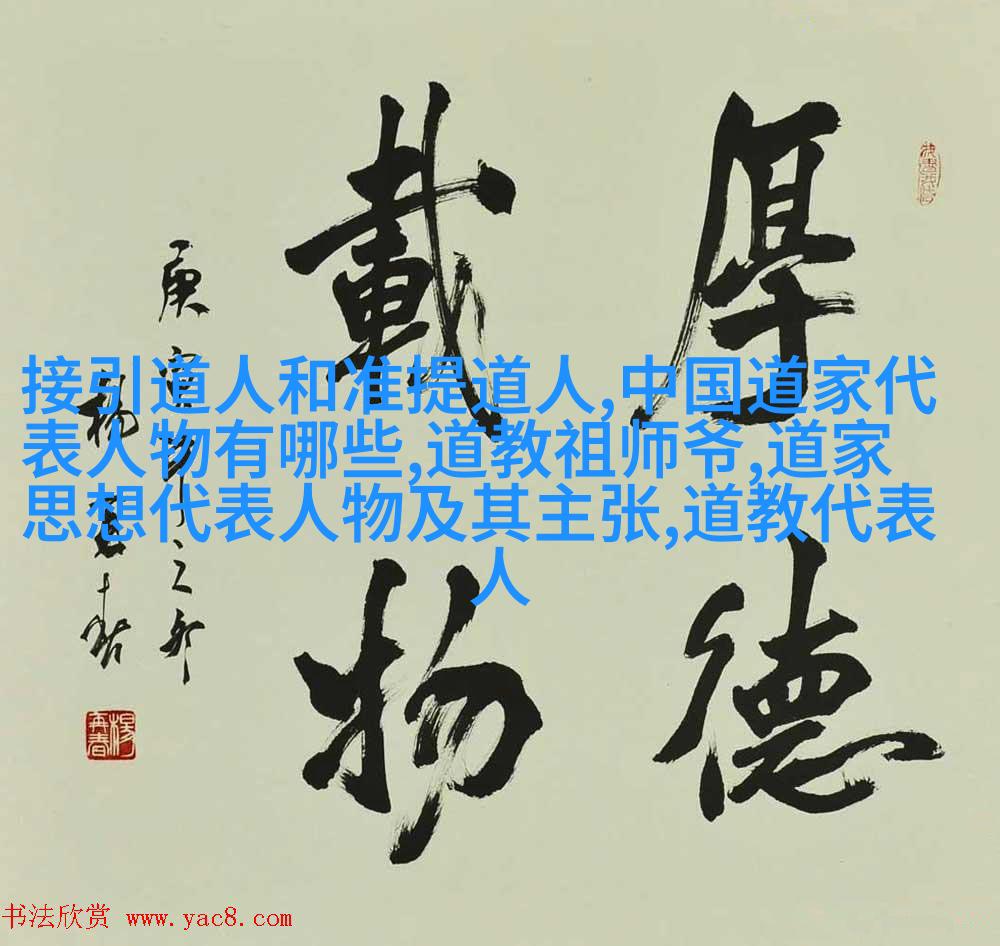 厚德
載物
庚寅
楊再春
接引道人和准提道人,中国道家代
表人物有哪些,道教祖师爷,道家
思想代表人物及其主张,道教代表
人
楊再春
书法欣赏 www.yac8.com